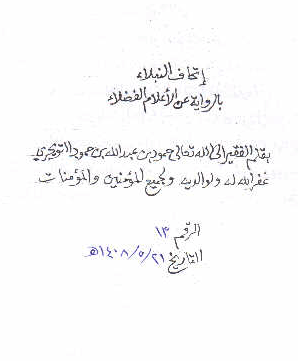 إتحاف النبلاء
بالرواية عن الأعلام الفضلاء
بقلم الفقير إلى الله تعالى حمود بن عبد الله بن حمود التويجري
غفر الله له ولوالديه ولجميع المؤمنين والمؤمنات
الرقم ١٣
التاريخ ١٤٠٨/٥/٢١هـ